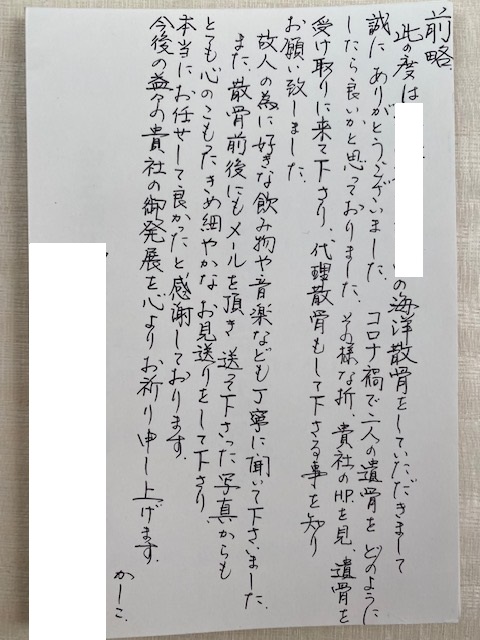 前略
此の度は
の海洋散骨をしていただきまして
誠にありがとうございました。コロナ禍で二人の遺骨をどのように
したら良いかと思っておりました。その様な折、貴社のH.P.を見、遺骨を
受け取りに来て下さり、代理散骨もして下さる事を知り
お願い致しました。
故人の為に好きな飲み物や音楽なども丁寧に聞いて下さいました。
また、散骨前後にもメールを頂き 送って下さった写真からも
とても心のこもったきめ細やかなお見送りをして下さり
本当にお任せして良かったと感謝しております。
今後の益々の貴社の御発展を心よりお祈り申し上げます。
かしこ